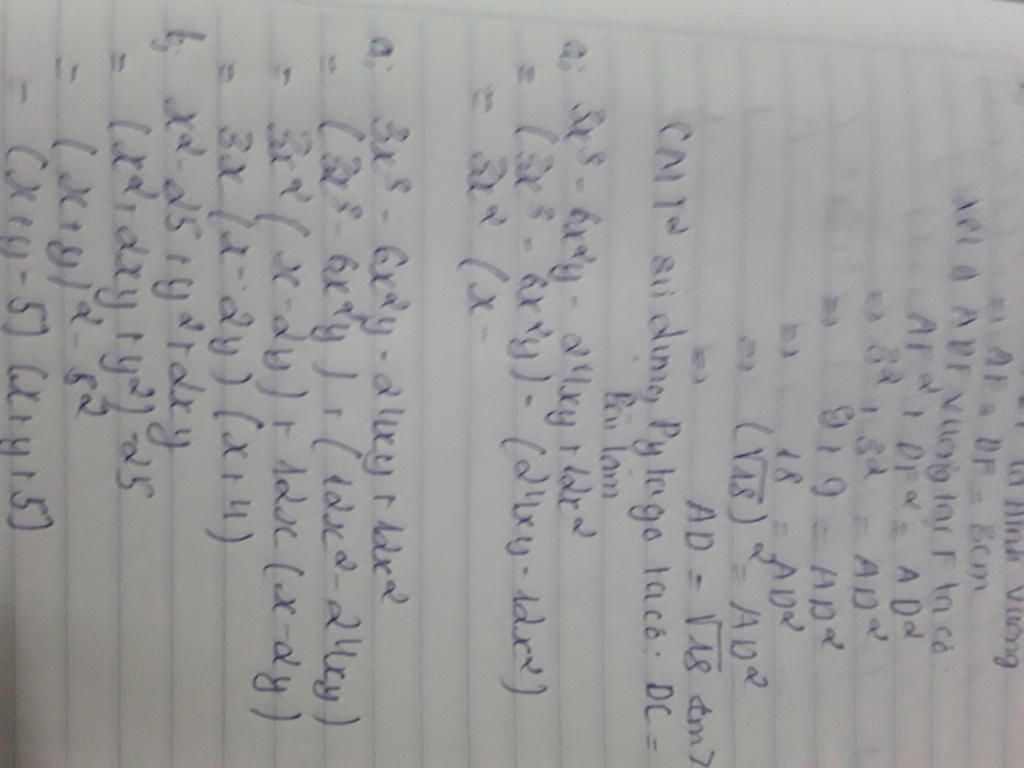 là hình vuông
=> AF = DF = 3cm
Xét ∆ ADF vuông tại F ta có
AF² + DF² = AD²
=> 3² + 3² = AD²
=> 9 + 9 = AD²
=> 18 = AD²
=> (√18)² = AD²
=> AD = √18 cm
CMT² sử dụng Pytago ta có: DC =
Bài làm
a; 3x³ - 6x²y - 24xy + 12x²
= (3x³ - 6x²y) - (24xy - 12x²)
= 3x² (x -
a; 3x³ - 6x²y - 24xy + 12x²
= (3x³ - 6x²y) + (12x² - 24xy)
= 3x² (x - 2y) + 12x (x - 2y)
= 3x (x - 2y) (x + 4)
b; x² - 25 + y² + 2xy
= (x² + 2xy + y²) - 25
= (x + y)² - 5²
= (x + y - 5) (x + y + 5)